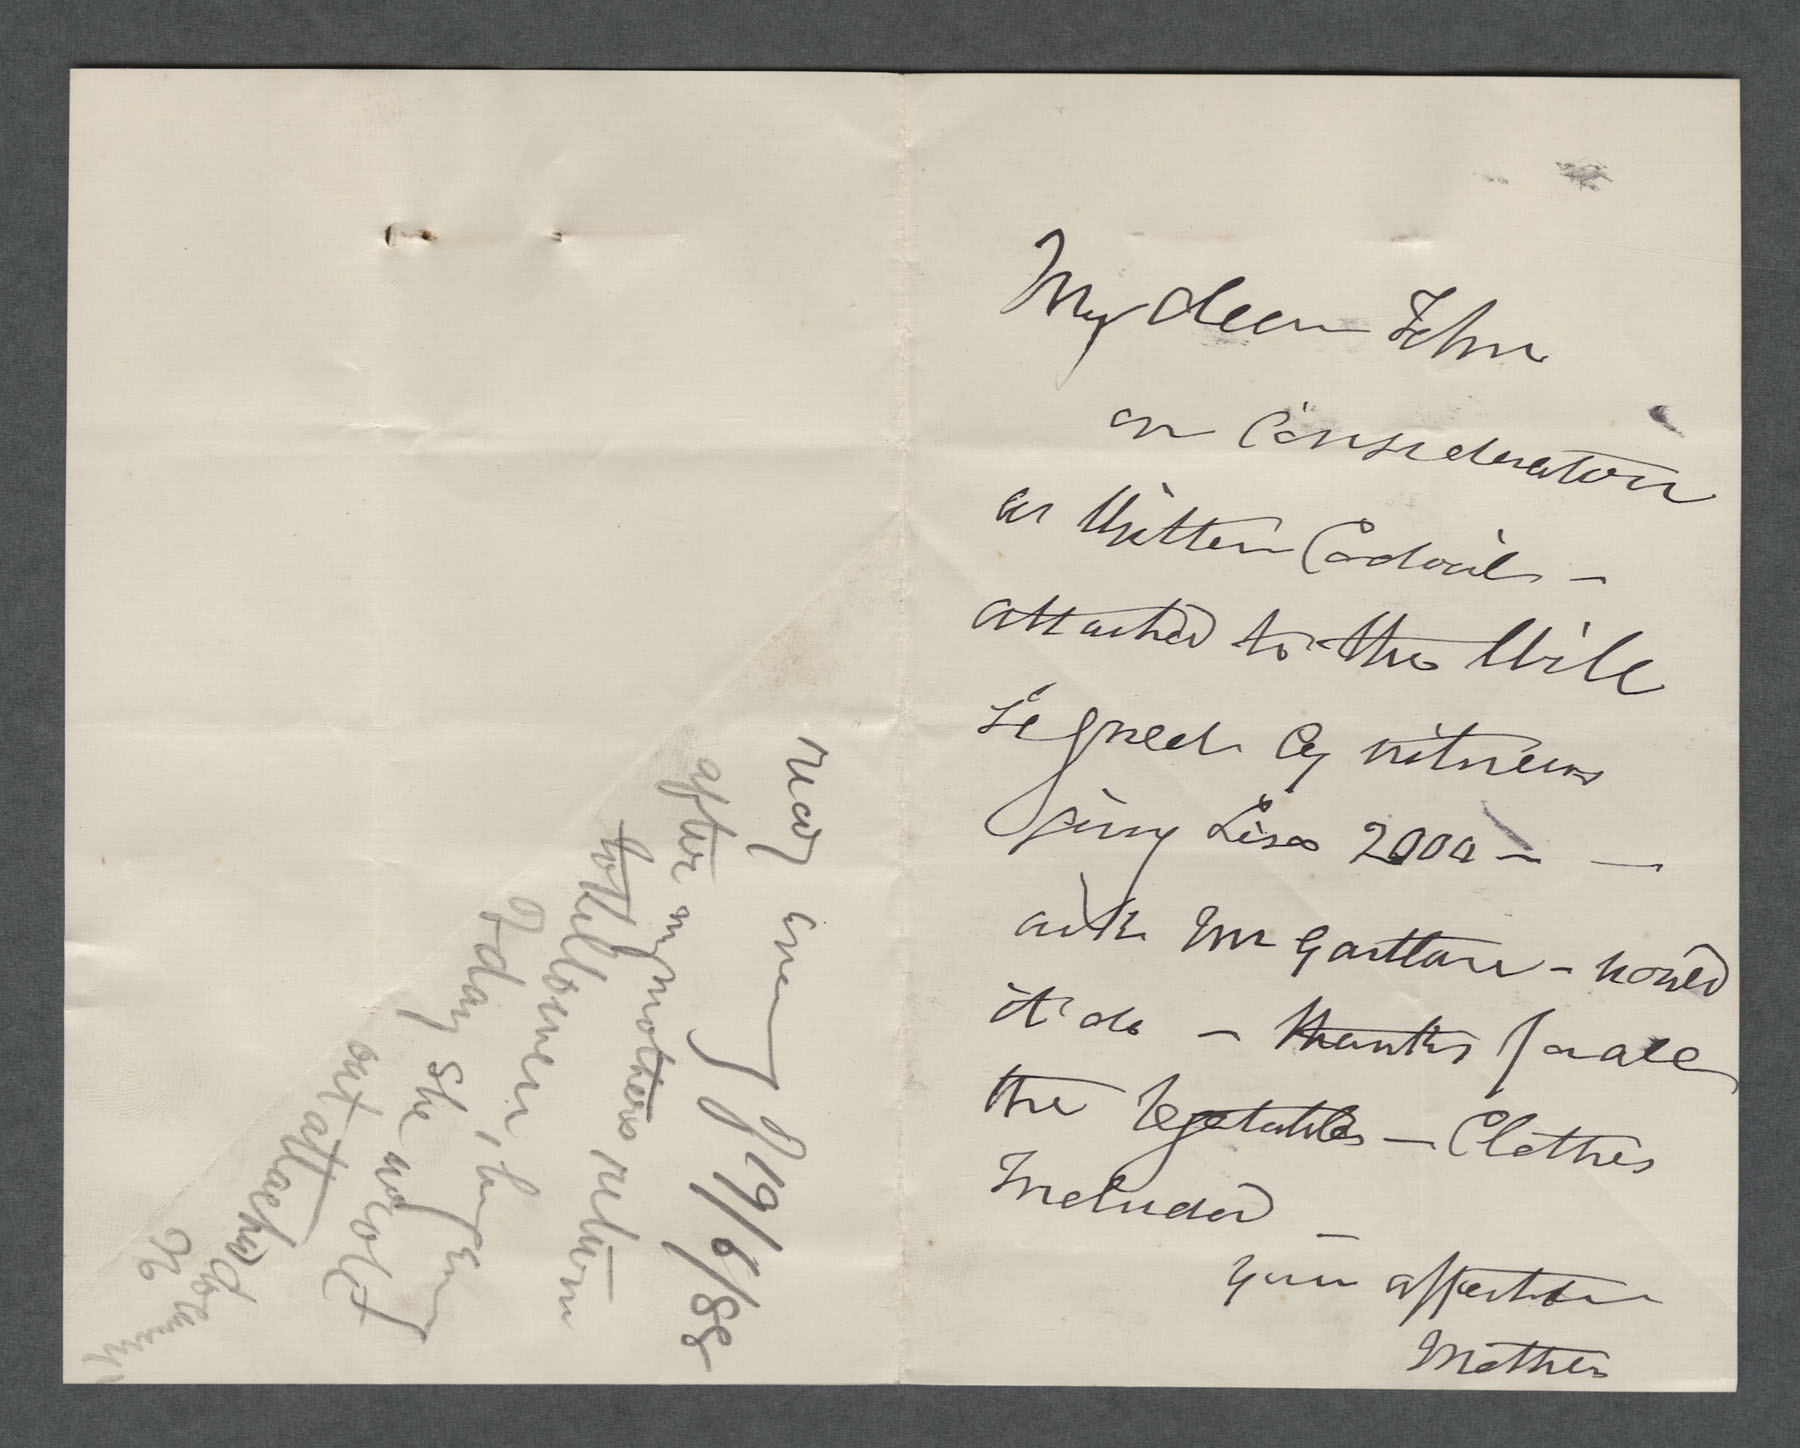 My dear John
on Consideration
a written Codocils -
attached to the Will
Signed by witness
giving Lisa 2000 - -
ask Mr Gartlan - would
it do - thanks for all
the Vegetables - Clothes
Included -
your affection
Mother
recd 19/6/88
after my mothers return
to Melbourne
Iday she
out attached